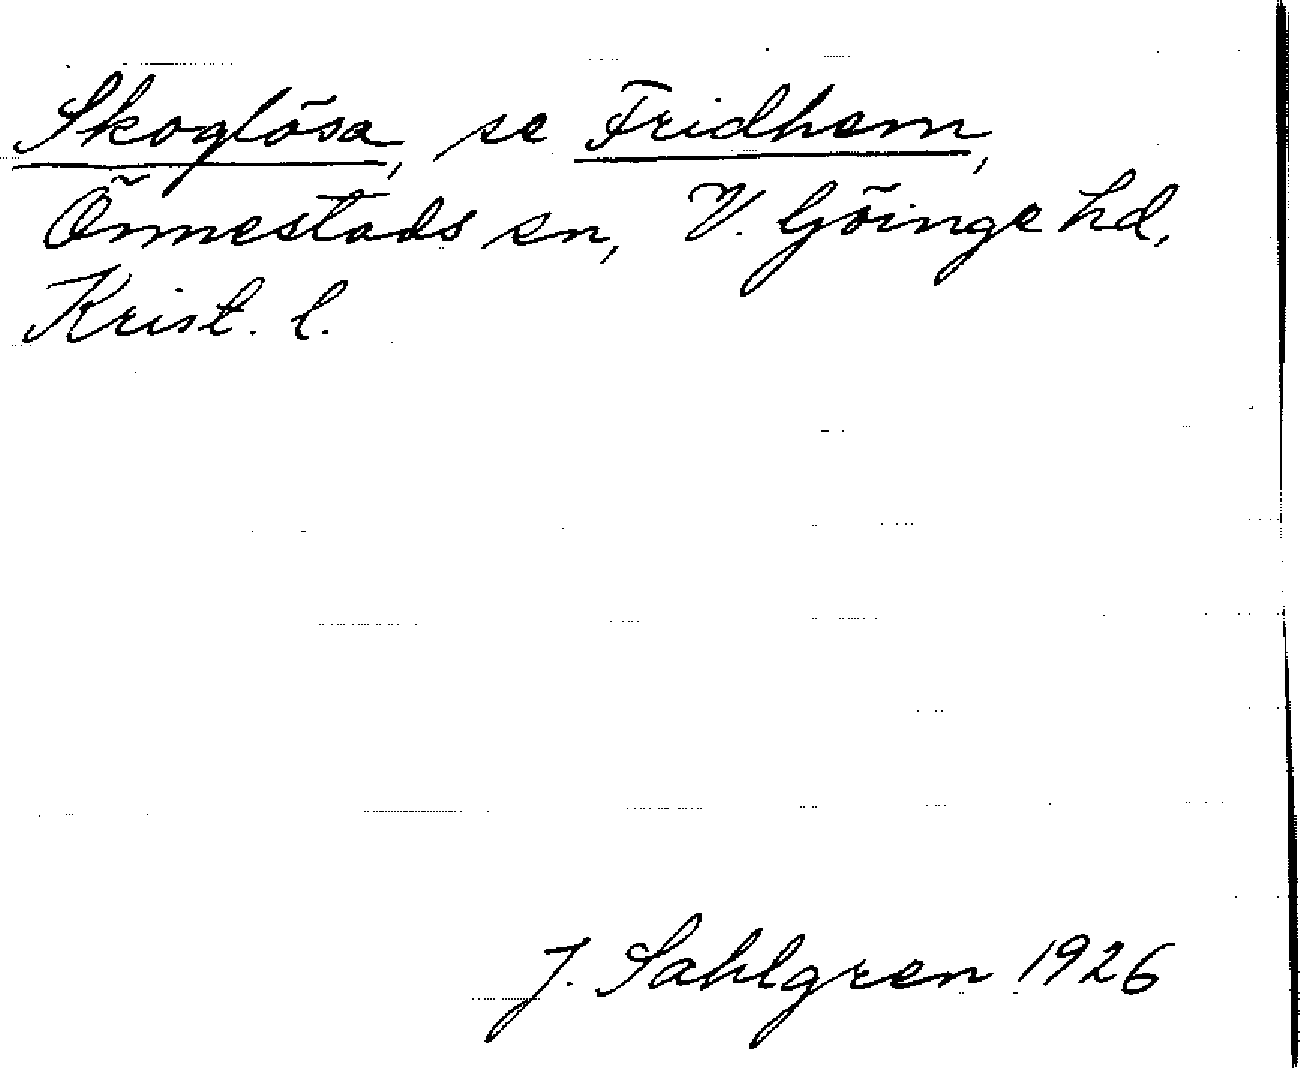 Skoglösa, se Fridhem,
Önnestads sn, V. Göinge hd,
Krist. l.
J. Sahlgren 1926